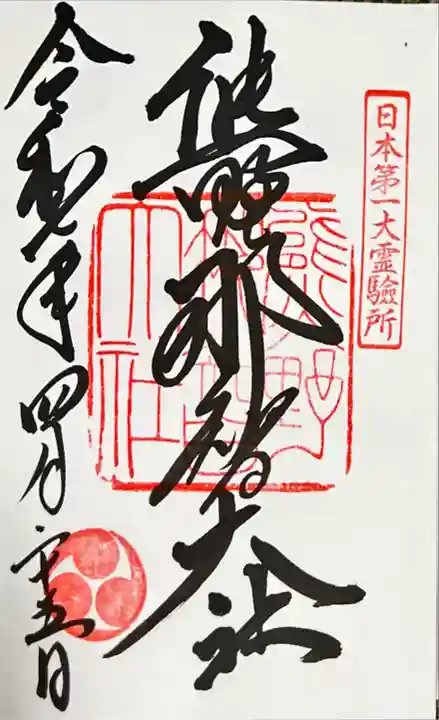 日本第一大霊驗所
熊野那智大社
熊野那智大社
令和年四月二十五日